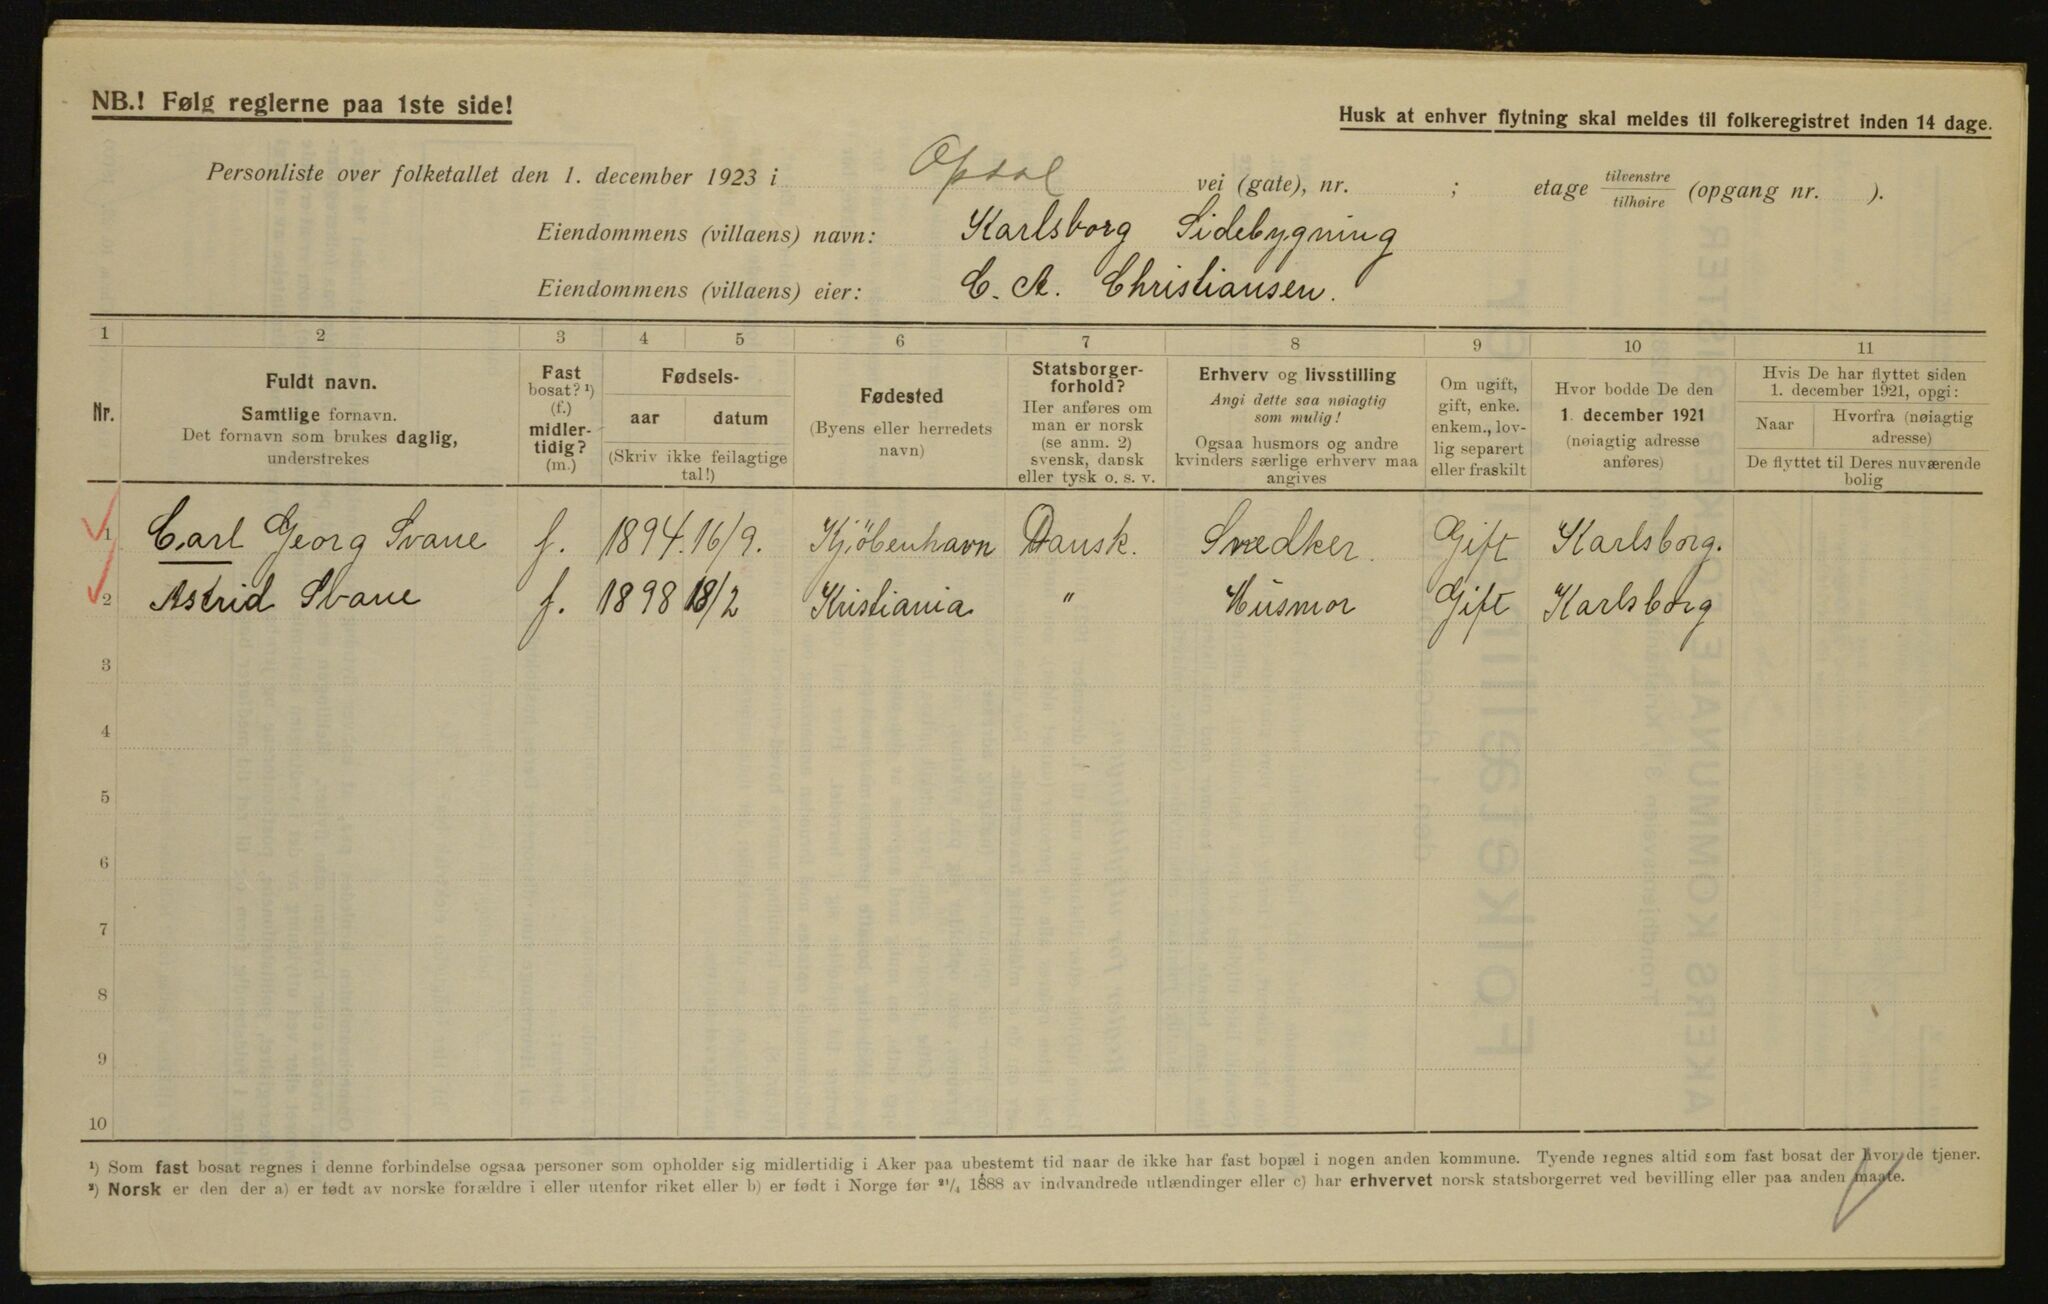 NB.! Følg reglerne paa 1ste side!
Husk at enhver flytning skal meldes til folkeregistret inden 14 dage.
Personliste over folketallet den 1. december 1923 i Opsal vei (gate), nr. ; etage tilvenstre / tilhøire (opgang nr. ).
Eiendommens (villaens) navn: Karlsborg Sidebygning
Eiendommens (villaens) eier: C. A. Christiansen.
1 2 3 4 5 6 7 8 9 10 11
Nr.
Fuldt navn.
Samtlige fornavn.
Det fornavn som brukes daglig,
understrekes
Fast
bosat? ¹)
(f.)
midler-
tidig?
(m.)
Fødsels-
aar datum
(Skriv ikke feilagtige
tal!)
Fødested
(Byens eller herredets
navn)
Statsborger-
forhold?
Her anføres om
man er norsk
(se anm. 2)
svensk, dansk
eller tysk o. s. v.
Erhverv og livsstilling
Angi dette saa nøiagtig
som mulig!
Ogsaa husmors og andre
kvinders særlige erhverv maa
angives
Om ugift,
gift, enke.
enkem., lov-
lig separert
eller fraskilt
Hvor bodde De den
1. december 1921
(nøiagtig adresse
anføres)
Hvis De har flyttet siden
1. december 1921, opgi:
Naar Hvorfra (nøiagtig
adresse)
De flyttet til Deres nuværende
bolig
1 Carl Georg Svane f. 1894. 16/9. Kjöbenhavn Dansk. Snedker. Gift Karlsborg.
2 Astrid Svane f. 1898 18/2 Kristiania " Husmor Gift Karlsborg
3
4
5
6
7
8
9
10
¹) Som fast bosat regnes i denne forbindelse ogsaa personer som opholder sig midlertidig i Aker paa ubestemt tid naar de ikke har fast bopæl i nogen anden kommune. Tyende regnes altid som fast bosat der hvor de tjener.
²) Norsk er den der a) er født av norske forældre i eller utenfor riket eller b) er født i Norge før ²¹/₄ 1888 av indvandrede utlændinger eller c) har erhvervet norsk statsborgerret ved bevilling eller paa anden maate.